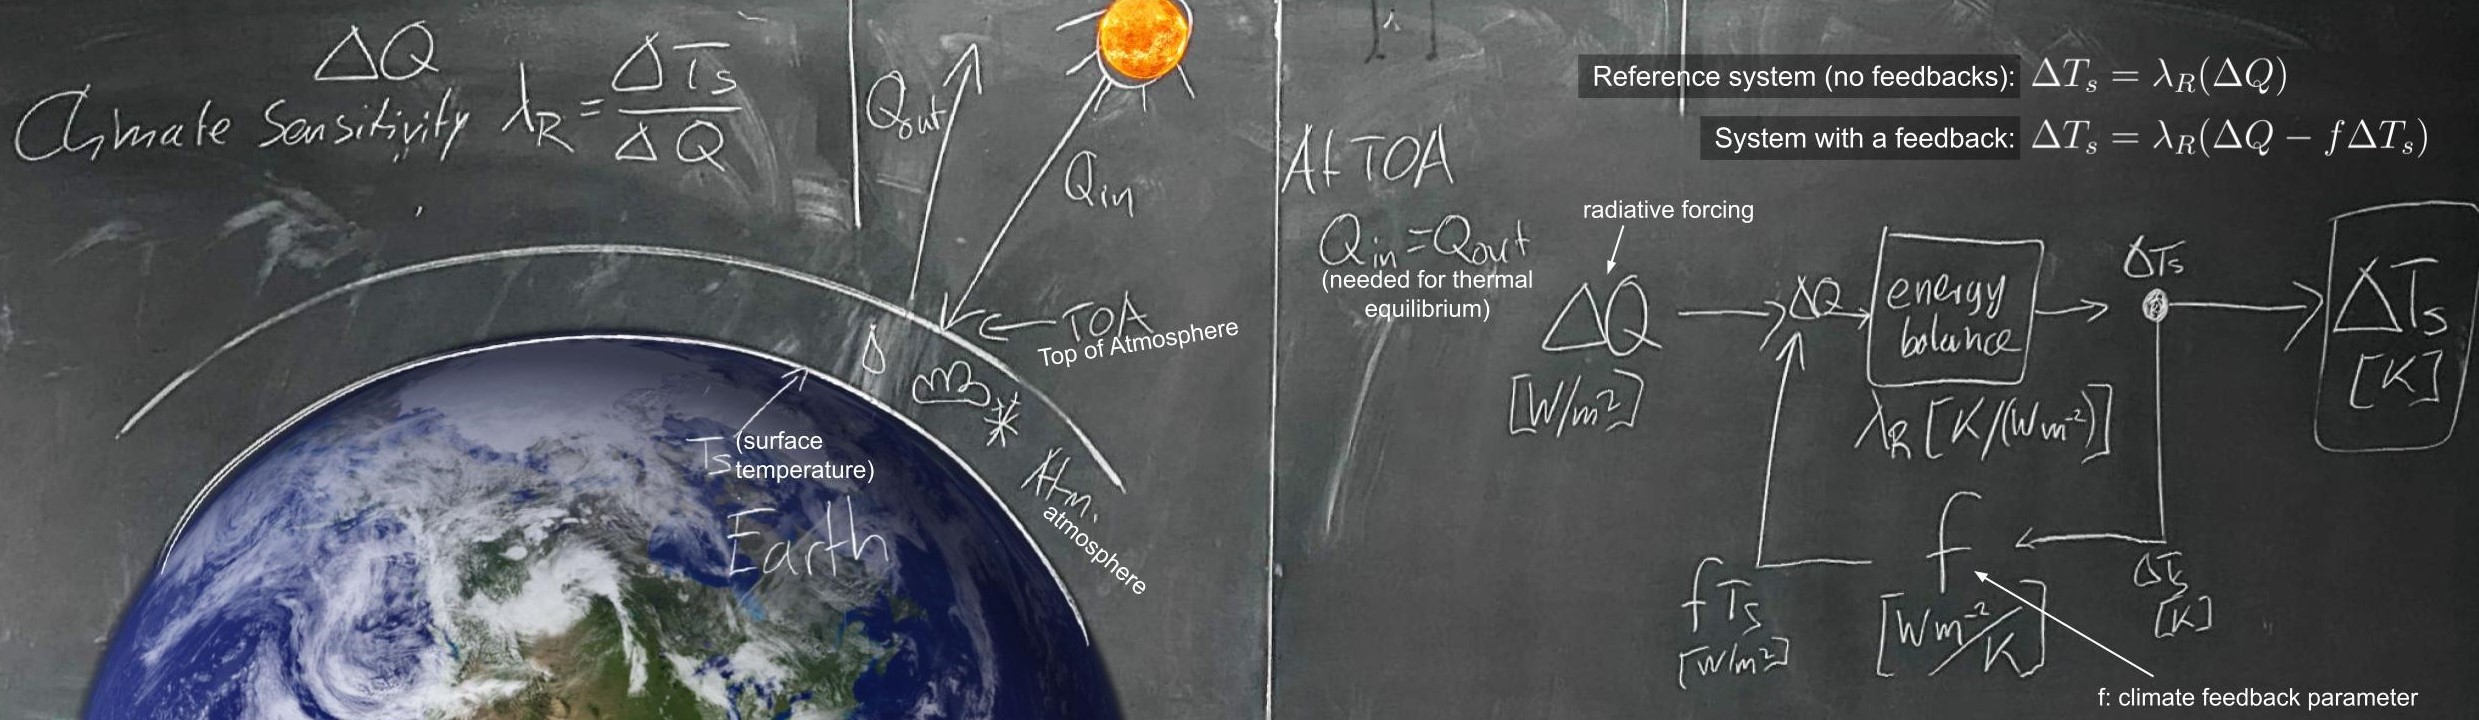 ΔQ
Climate Sensitivity λR = ΔTs / ΔQ
Qout
Qin
TOA
Top of Atmosphere
Ts (surface
temperature)
Earth
Atm.
atmosphere
At TOA
Qin = Qout
(needed for thermal
equilibrium)
Reference system (no feedbacks): ΔTs = λR(ΔQ)
System with a feedback: ΔTs = λR(ΔQ − fΔTs)
radiative forcing
ΔQ
[W/m²]
ΔQ
energy
balance
λR [K/(Wm⁻²)]
ΔTs
ΔTs
[K]
f
[Wm⁻²/K]
ΔTs
[K]
f Ts
[W/m²]
f: climate feedback parameter